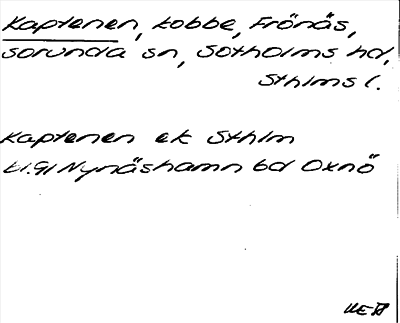 Kaptenen, kobbe, Frönäs,
Sorunda sn, Sotholms hd,
Sthlms l.
Kaptenen ek Sthlm
bl. 91 Nynäshamn bd Oxnö